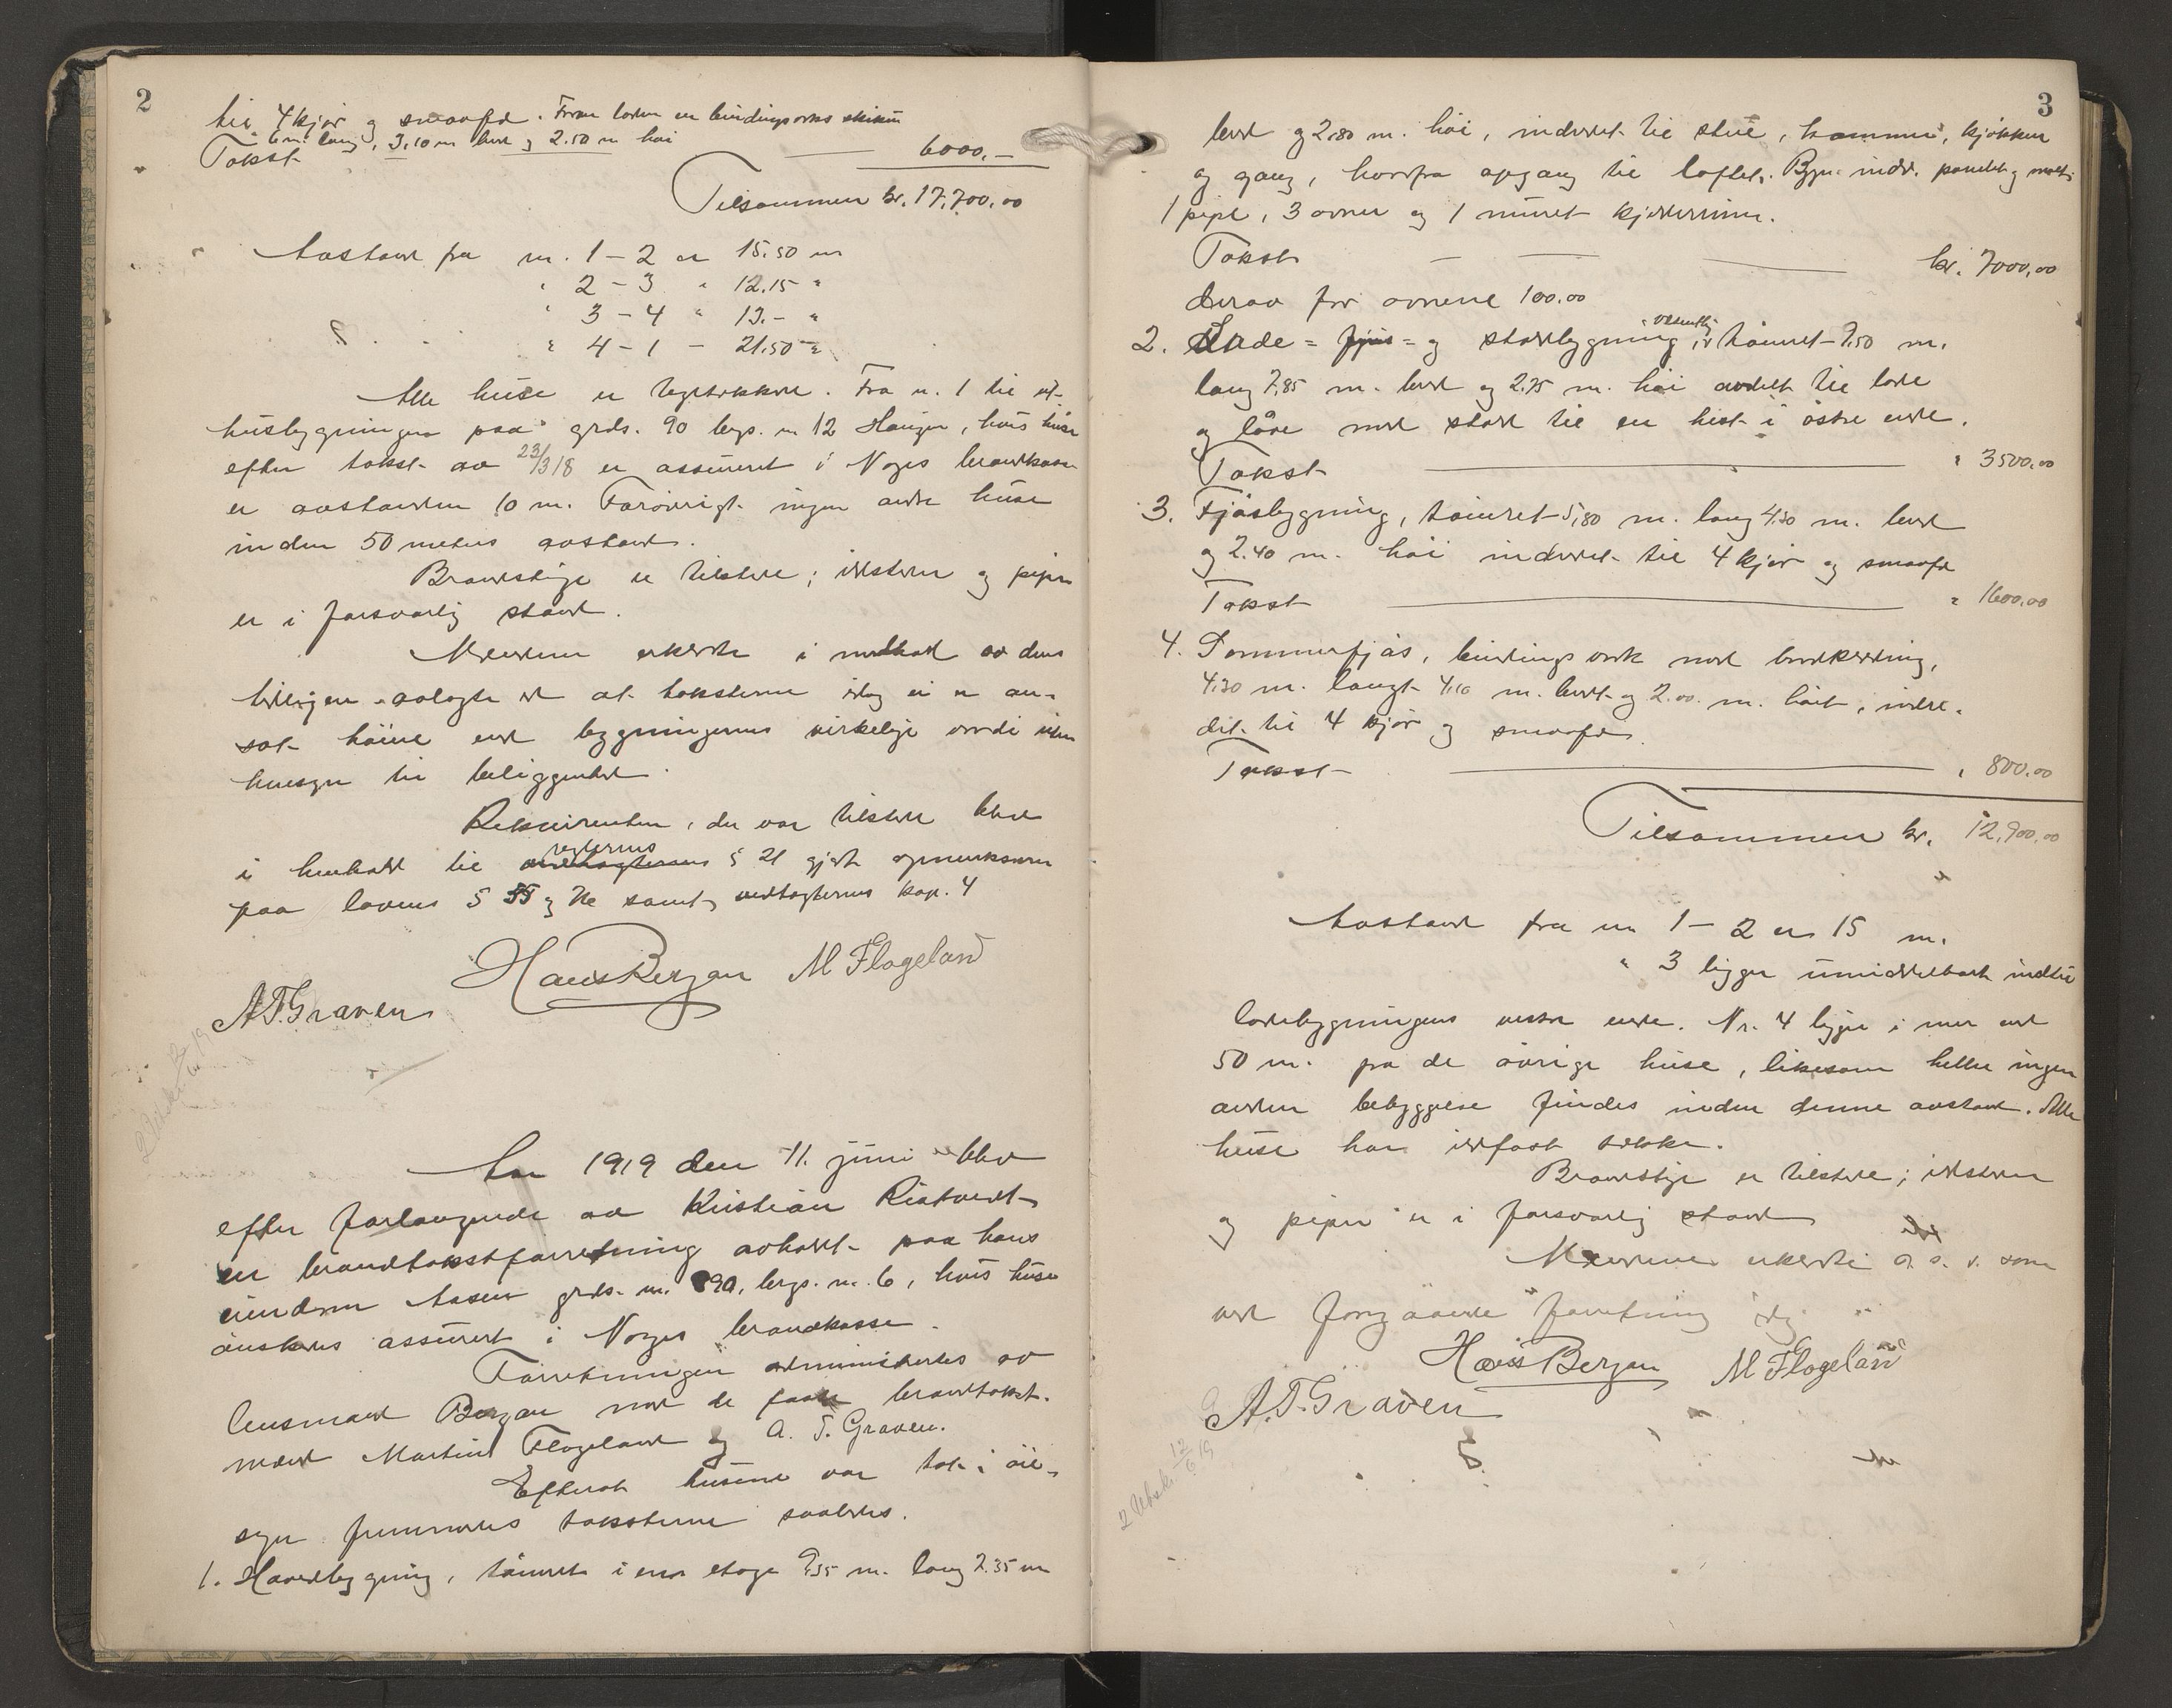 2
til 4 kjør og smaafæ. Foran loden en bindingsverks skikun
6 m. lang, 3.10 m bred og 2.50 m høi
Takst — 6000.—
Tilsammen kr. 17,700.00
Avstand fra nr. 1 – 2 er 15.50 m
" 2 – 3 " 12.15 "
" 3 – 4 " 13.– "
" 4 – 1 – 21.50 "
Alle huse er tegltækket. Fra nr. 1 til ut-
husbygningen paa grds. 90 brgs. nr 12 Haugen, hvis huse
efter takst av 23/3 18 er assureret i Norges brandkasse
er avstanden 10 m. Forøvrigt ingen andre huse
inden 50 meters avstand.
Brandstige er tilstede; ildsteder og piper
er i forsvarlig stand.
Mændene erklærte i medhold av deres
tidligere avlagte ed at taksterne idag ei er an-
sat høiere end bygningernes virkelige værdi uten
hensyn til beliggenhet.
Rekvirenten, der var tilstede blev
i henhold til vedtægternes reglernes § 21 gjort opmerksom
paa lovens § 55 og 72 samt vedtægternes kap. 4
Hans Bergan M Flageland
A.T. Graven
2 Utskr. 12/6 19
Aar 1919 den 11. juni blev
efter forlangende av Kristian
en brandtakstforretning avholdt paa hans
eiendom Aasen grds. nr. 90, brgs. nr. 6, hvis huse
ønskes assurert i Norges brandkasse.
Forretningen administreres av
lensmand Bergan med de faste brandtakst-
mænd Martin Flageland og A. T. Graven.
Efterat husene var tat i øie-
syn fremmedes taksterne saaledes.
1. Hovedbygning, tømret i en etage 9.35 m. lang 7.35 m
3
bred og 2.80 m. høi, indredet til stue, kammer, kjøkken
og gang, hvorfra opgang til loftet. Bygn. indv. panelet og malt.
1 pipe, 3 ovner og 1 muret kjælerrum.
Takst — — — kr. 7000.00
derav for ovnene 100.00
2. Lade = fjøs = og staldbygning, væsentlig tømret 9.50 m.
lang 7.85 m. bred og 2.75 m. høi avdelt til lade
og låve med stald til en hest i østre ende.
Takst — " 3500.00
3. Fjøsbygning, tømret 5.80 m. lang 4.30 m. bred
og 2.40 m. høi indredet til 4 kjør og smaafæ
Takst — " 1600.00
4. Sommerfjøs, bindingsverk med bordklædning,
4.30 m. langt 4.10 m. bredt og 2.00. m. høit, indre-
det til 4 kjør og smaafæ.
Takst — " 800.00
Tilsammen kr. 12,900.00
Avstand fra nr 1 – 2 er 15 m.
" 3 ligger umiddelbart indtil
ladebygningens vestre ende. Nr. 4 ligger i mer end
50 m. fra de øvrige huse, likesom heller ingen
anden bebyggelse findes inden denne avstand. Alle
huse har ildfast tække.
Brandstige er tilstede; ildsteder
og piper er i forsvarlig stand
Mændene erklærte o. s. v. som
ved foregaaende forretning idag.
Hans Bergan M Flageland
A.T. Graven
2 Utskr. 12/6 19